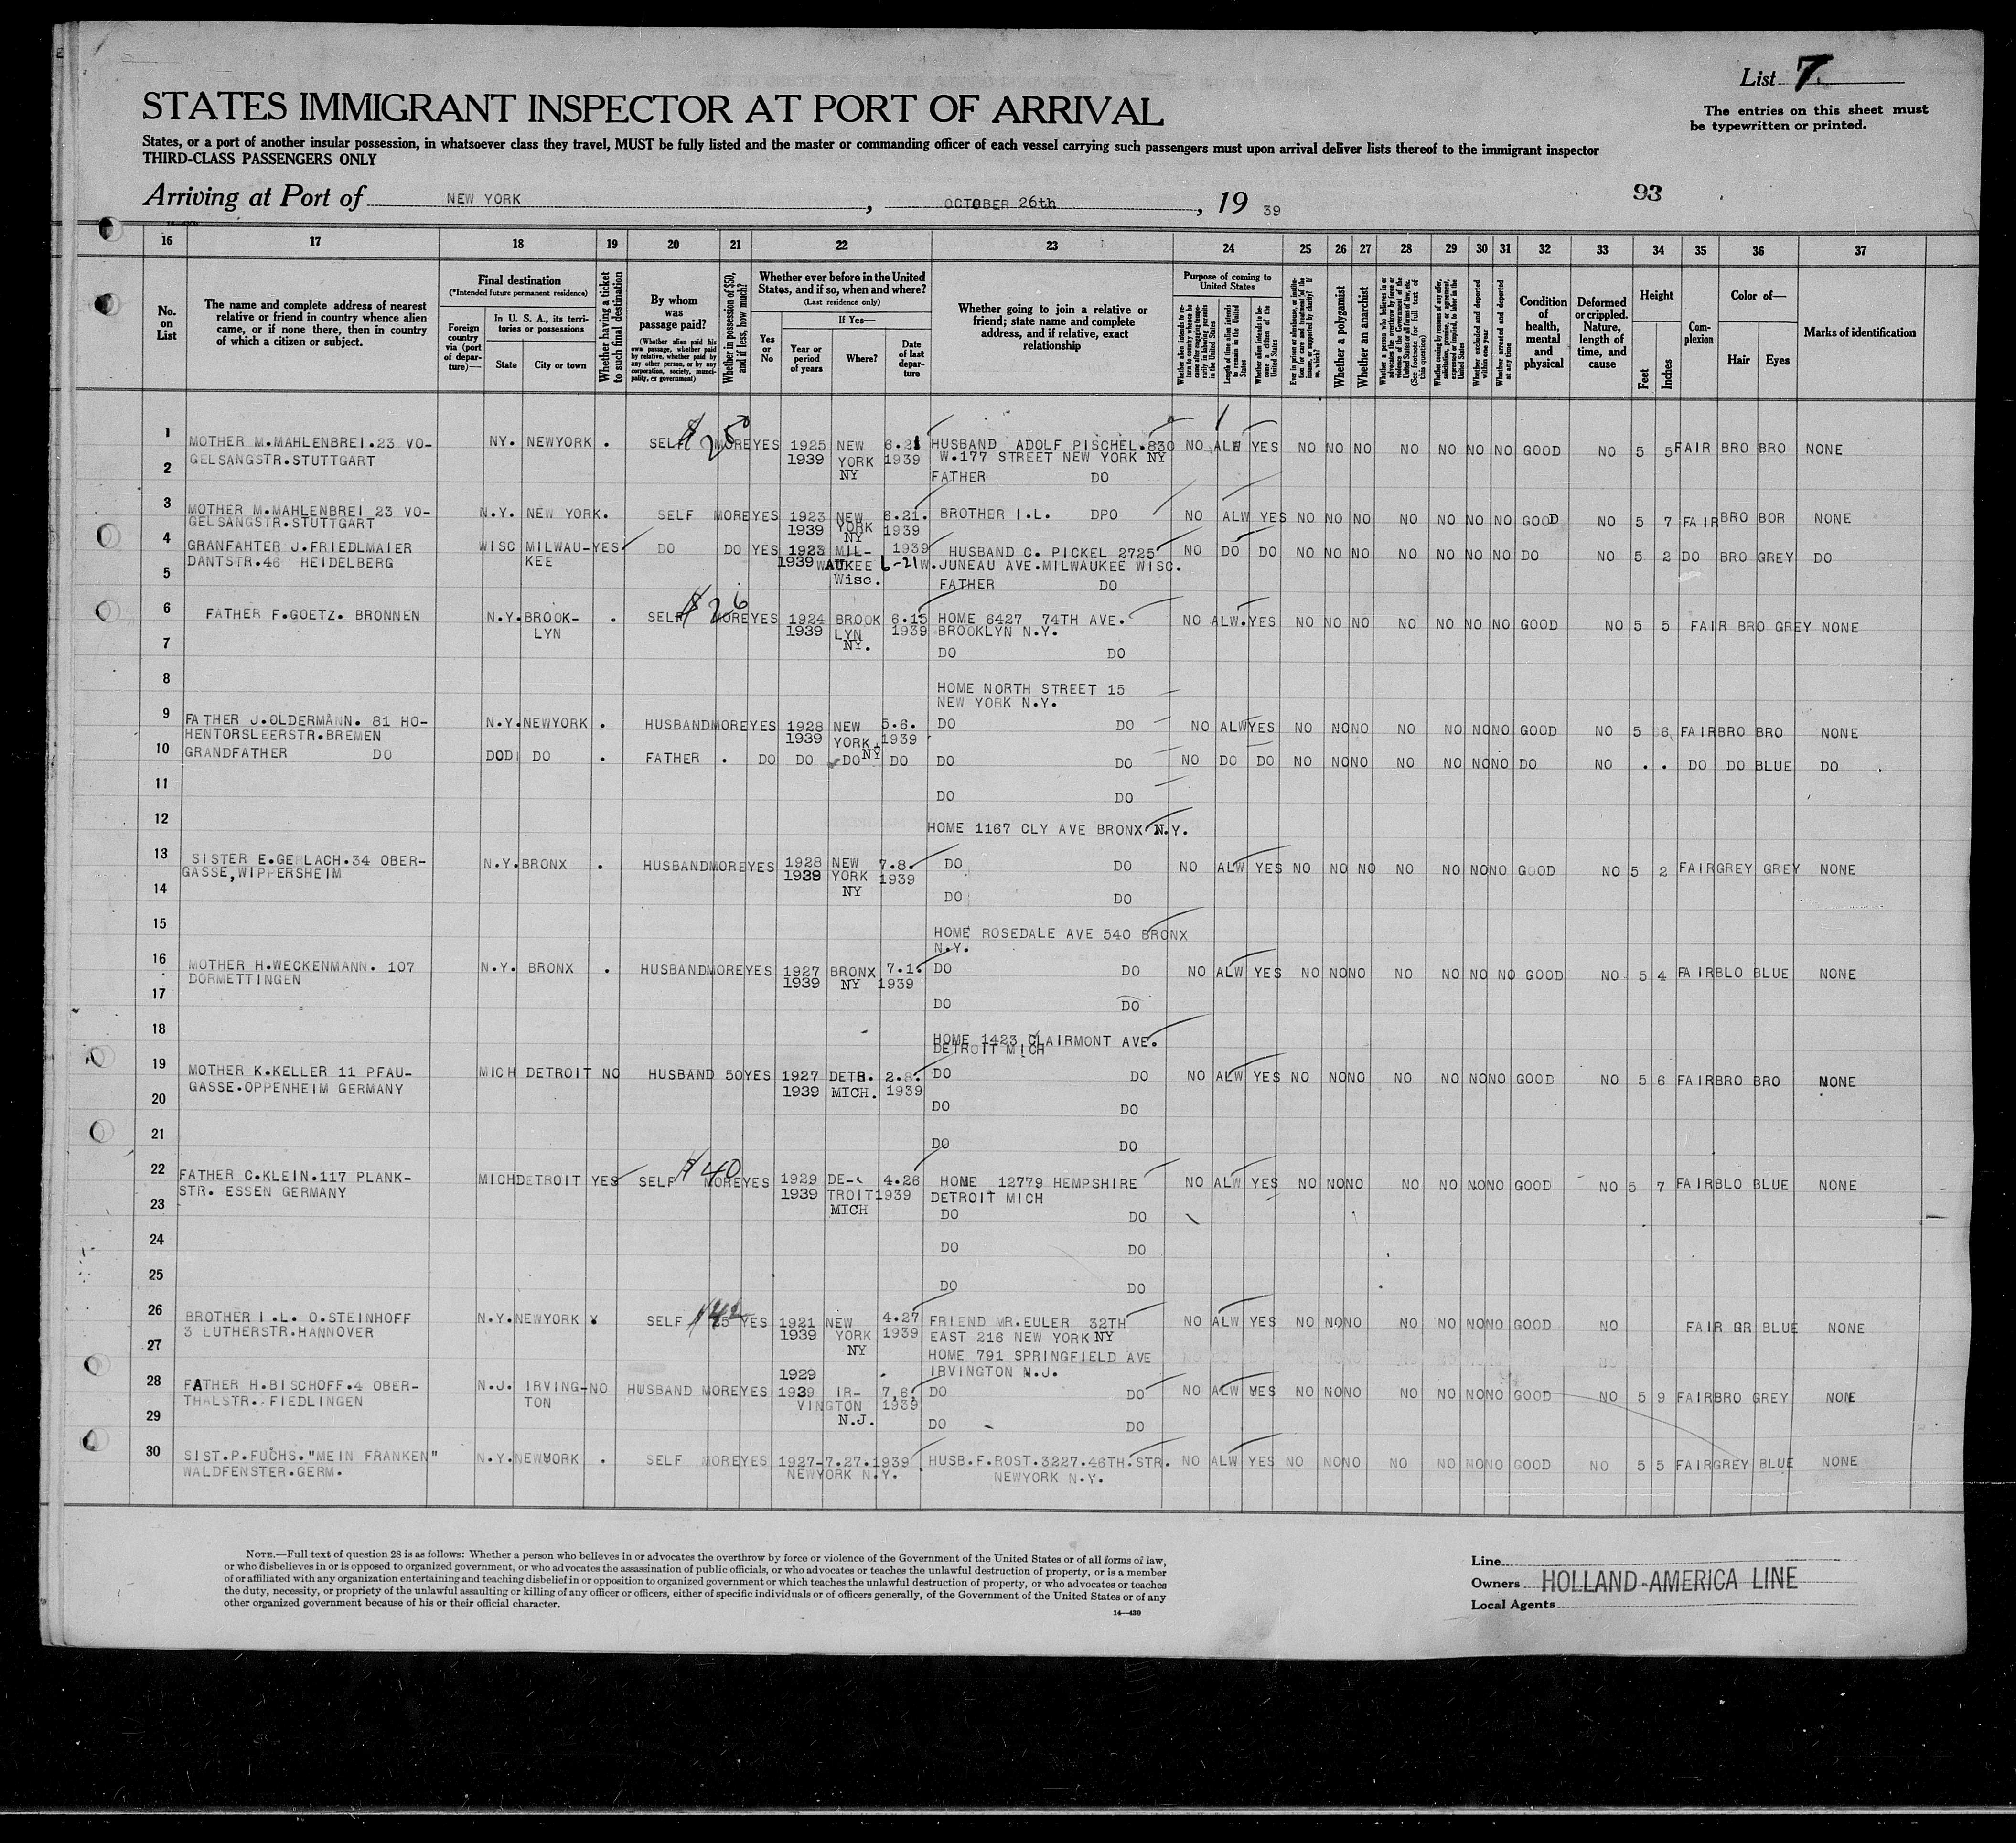 List 7.
The entries on this sheet must
be typewritten or printed.
STATES IMMIGRANT INSPECTOR AT PORT OF ARRIVAL
States, or a port of another insular possession, in whatsoever class they travel, MUST be fully listed and the master or commanding officer of each vessel carrying such passengers must upon arrival deliver lists thereof to the immigrant inspector
THIRD-CLASS PASSENGERS ONLY
Arriving at Port of NEW YORK, OCTOBER 26th, 19 39
93
16 17 18 19 20 21 22 23 24 25 26 27 28 29 30 31 32 33 34 35 36 37
No. on List
The name and complete address of nearest relative or friend in country whence alien came, or if none there, then in country of which a citizen or subject.
Final destination
(*Intended future permanent residence)
Foreign country via (port of departure)—
In U. S. A., its territories or possessions
State
City or town
Whether having a ticket to such final destination
By whom was passage paid?
(Whether alien paid his own passage, whether paid by relative, whether paid by any other person, or by any corporation, society, municipality, or government)
Whether in possession of $50, and if less, how much?
Whether ever before in the United States, and if so, when and where?
(Last residence only)
Yes or No
If Yes—
Year or period of years
Where?
Date of last departure
Whether going to join a relative or friend; state name and complete address, and if relative, exact relationship
Purpose of coming to United States
Length of time alien intends to remain in the United States
Whether alien intends to become a citizen of the United States
Whether a polygamist
Whether an anarchist
Whether excluded and deported within one year
Whether arrested and deported at any time
Condition of health, mental and physical
Deformed or crippled. Nature, length of time, and cause
Height
Feet
Inches
Complexion
Color of—
Hair
Eyes
Marks of identification
1 MOTHER M.MAHLENBREI.23 VO- NY. NEWYORK . SELF $ 25 MORE YES 1925 NEW 6.21 HUSBAND ADOLF PISCHEL.830 NO ALW YES NO NO NO NO NO NO NO GOOD NO 5 5 FAIR BRO BRO NONE
GELSANGSTR.STUTTGART 1939 YORK 1939 W.177 STREET NEW YORK NY
2 NY FATHER DO
3 MOTHER M.MAHLENBREI 23 VO- N.Y. NEW YORK. SELF MORE YES 1923 NEW 6.21. BROTHER I.L. DPO NO ALW YES NO NO NO NO NO NO NO GOOD NO 5 7 FAIR BRO BOR NONE
GELSANGSTR.STUTTGART 1939 YORK 1939
NY
4 GRANFAHTER J.FRIEDLMAIER WISC MILWAU- YES DO DO YES 1923 MIL- 1939 HUSBAND C. PICKEL 2725 NO DO DO NO NO NO NO NO NO NO DO NO 5 2 DO BRO GREY DO
DANTSTR.46 HEIDELBERG KEE 1939 WAUKEE 6-21 W.JUNEAU AVE.MILWAUKEE WISC.
5 Wisc. FATHER DO
6 FATHER F.GOETZ. BRONNEN N.Y. BROOK- . SELF $ 26 MORE YES 1924 BROOK 6.15 HOME 6427 74TH AVE. NO ALW. YES NO NO NO NO NO NO NO GOOD NO 5 5 FAIR BRO GREY NONE
LYN 1939 LYN 1939 BROOKLYN N.Y.
7 NY. DO DO
8 HOME NORTH STREET 15
NEW YORK N.Y.
9 FATHER J.OLDERMANN. 81 HO- N.Y. NEWYORK . HUSBAND MORE YES 1928 NEW 5.6. DO DO NO ALW YES NO NO NO NO NO NO NO GOOD NO 5 6 FAIR BRO BRO NONE
HENTORSLEERSTR.BREMEN 1939 YORK 1939
NY
10 GRANDFATHER DO DO DO . FATHER . DO DO DO DO DO DO NO DO DO NO NO NO NO NO NO NO DO NO . . DO DO BLUE DO
11 DO DO
12 HOME 1167 CLY AVE BRONX N.Y.
13 SISTER E.GERLACH.34 OBER- N.Y. BRONX . HUSBAND MORE YES 1928 NEW 7.8. DO DO NO ALW YES NO NO NO NO NO NO NO GOOD NO 5 2 FAIR GREY GREY NONE
GASSE,WIPPERSHEIM 1939 YORK 1939
14 NY DO DO
15 HOME ROSEDALE AVE 540 BRONX
N.Y.
16 MOTHER H.WECKENMANN. 107 N.Y. BRONX . HUSBAND MORE YES 1927 BRONX 7.1. DO DO NO ALW YES NO NO NO NO NO NO NO GOOD NO 5 4 FAIR BLO BLUE NONE
DORMETTINGEN 1939 NY 1939
17 DO DO
18 HOME 1423 CLAIRMONT AVE.
DETROIT MICH
19 MOTHER K.KELLER 11 PFAU- MICH DETROIT NO HUSBAND 50 YES 1927 DETR. 2.8. DO DO NO ALW YES NO NO NO NO NO NO NO GOOD NO 5 6 FAIR BRO BRO NONE
GASSE.OPPENHEIM GERMANY 1939 MICH. 1939
20 DO DO
21 DO DO
22 FATHER C.KLEIN.117 PLANK- MICH DETROIT YES SELF $ 40 MORE YES 1929 DE- 4.26 HOME 12779 HEMPSHIRE NO ALW YES NO NO NO NO NO NO NO GOOD NO 5 7 FAIR BLO BLUE NONE
STR. ESSEN GERMANY 1939 TROIT 1939 DETROIT MICH
23 MICH DO DO
24 DO DO
25 DO DO
26 BROTHER I.L. O.STEINHOFF N.Y. NEWYORK SELF $42 YES 1921 NEW 4.27 FRIEND MR.EULER 32TH NO ALW YES NO NO NO NO NO NO NO GOOD NO FAIR GR BLUE NONE
3 LUTHERSTR.HANNOVER 1939 YORK 1939 EAST 216 NEW YORK NY
27 NY HOME 791 SPRINGFIELD AVE
1929 IRVINGTON N.J.
28 FATHER H.BISCHOFF.4 OBER- N.J. IRVING- NO HUSBAND MORE YES 1939 IR- 7,6, DO DO NO ALW YES NO NO NO NO NO NO NO GOOD NO 5 9 FAIR BRO GREY NONE
THALSTR. FIEDLINGEN TON VINGTON 1939
29 N.J. DO DO
30 SIST.P.FUCHS."MEIN FRANKEN" N.Y. NEWYORK . SELF MORE YES 1927-7.27.1939 HUSB.F.ROST.3227.46TH.STR. NO ALW YES NO NO NO NO NO NO NO GOOD NO 5 5 FAIR GREY BLUE NONE
WALDFENSTER.GERM. NEWYORK N.Y. NEWYORK N.Y.
NOTE.—Full text of question 28 is as follows: Whether a person who believes in or advocates the overthrow by force or violence of the Government of the United States or of all forms of law,
or who disbelieves in or is opposed to organized government, or who advocates the assassination of public officials, or who advocates or teaches the unlawful destruction of property, or is a member
of or affiliated with any organization entertaining and teaching disbelief in or opposition to organized government or which teaches the unlawful destruction of property, or who advocates or teaches
the duty, necessity, or propriety of the unlawful assaulting or killing of any officer or officers, either of specific individuals or of officers generally, of the Government of the United States or of any
other organized government because of his or their official character.
14—430
Line
Owners HOLLAND-AMERICA LINE
Local Agents